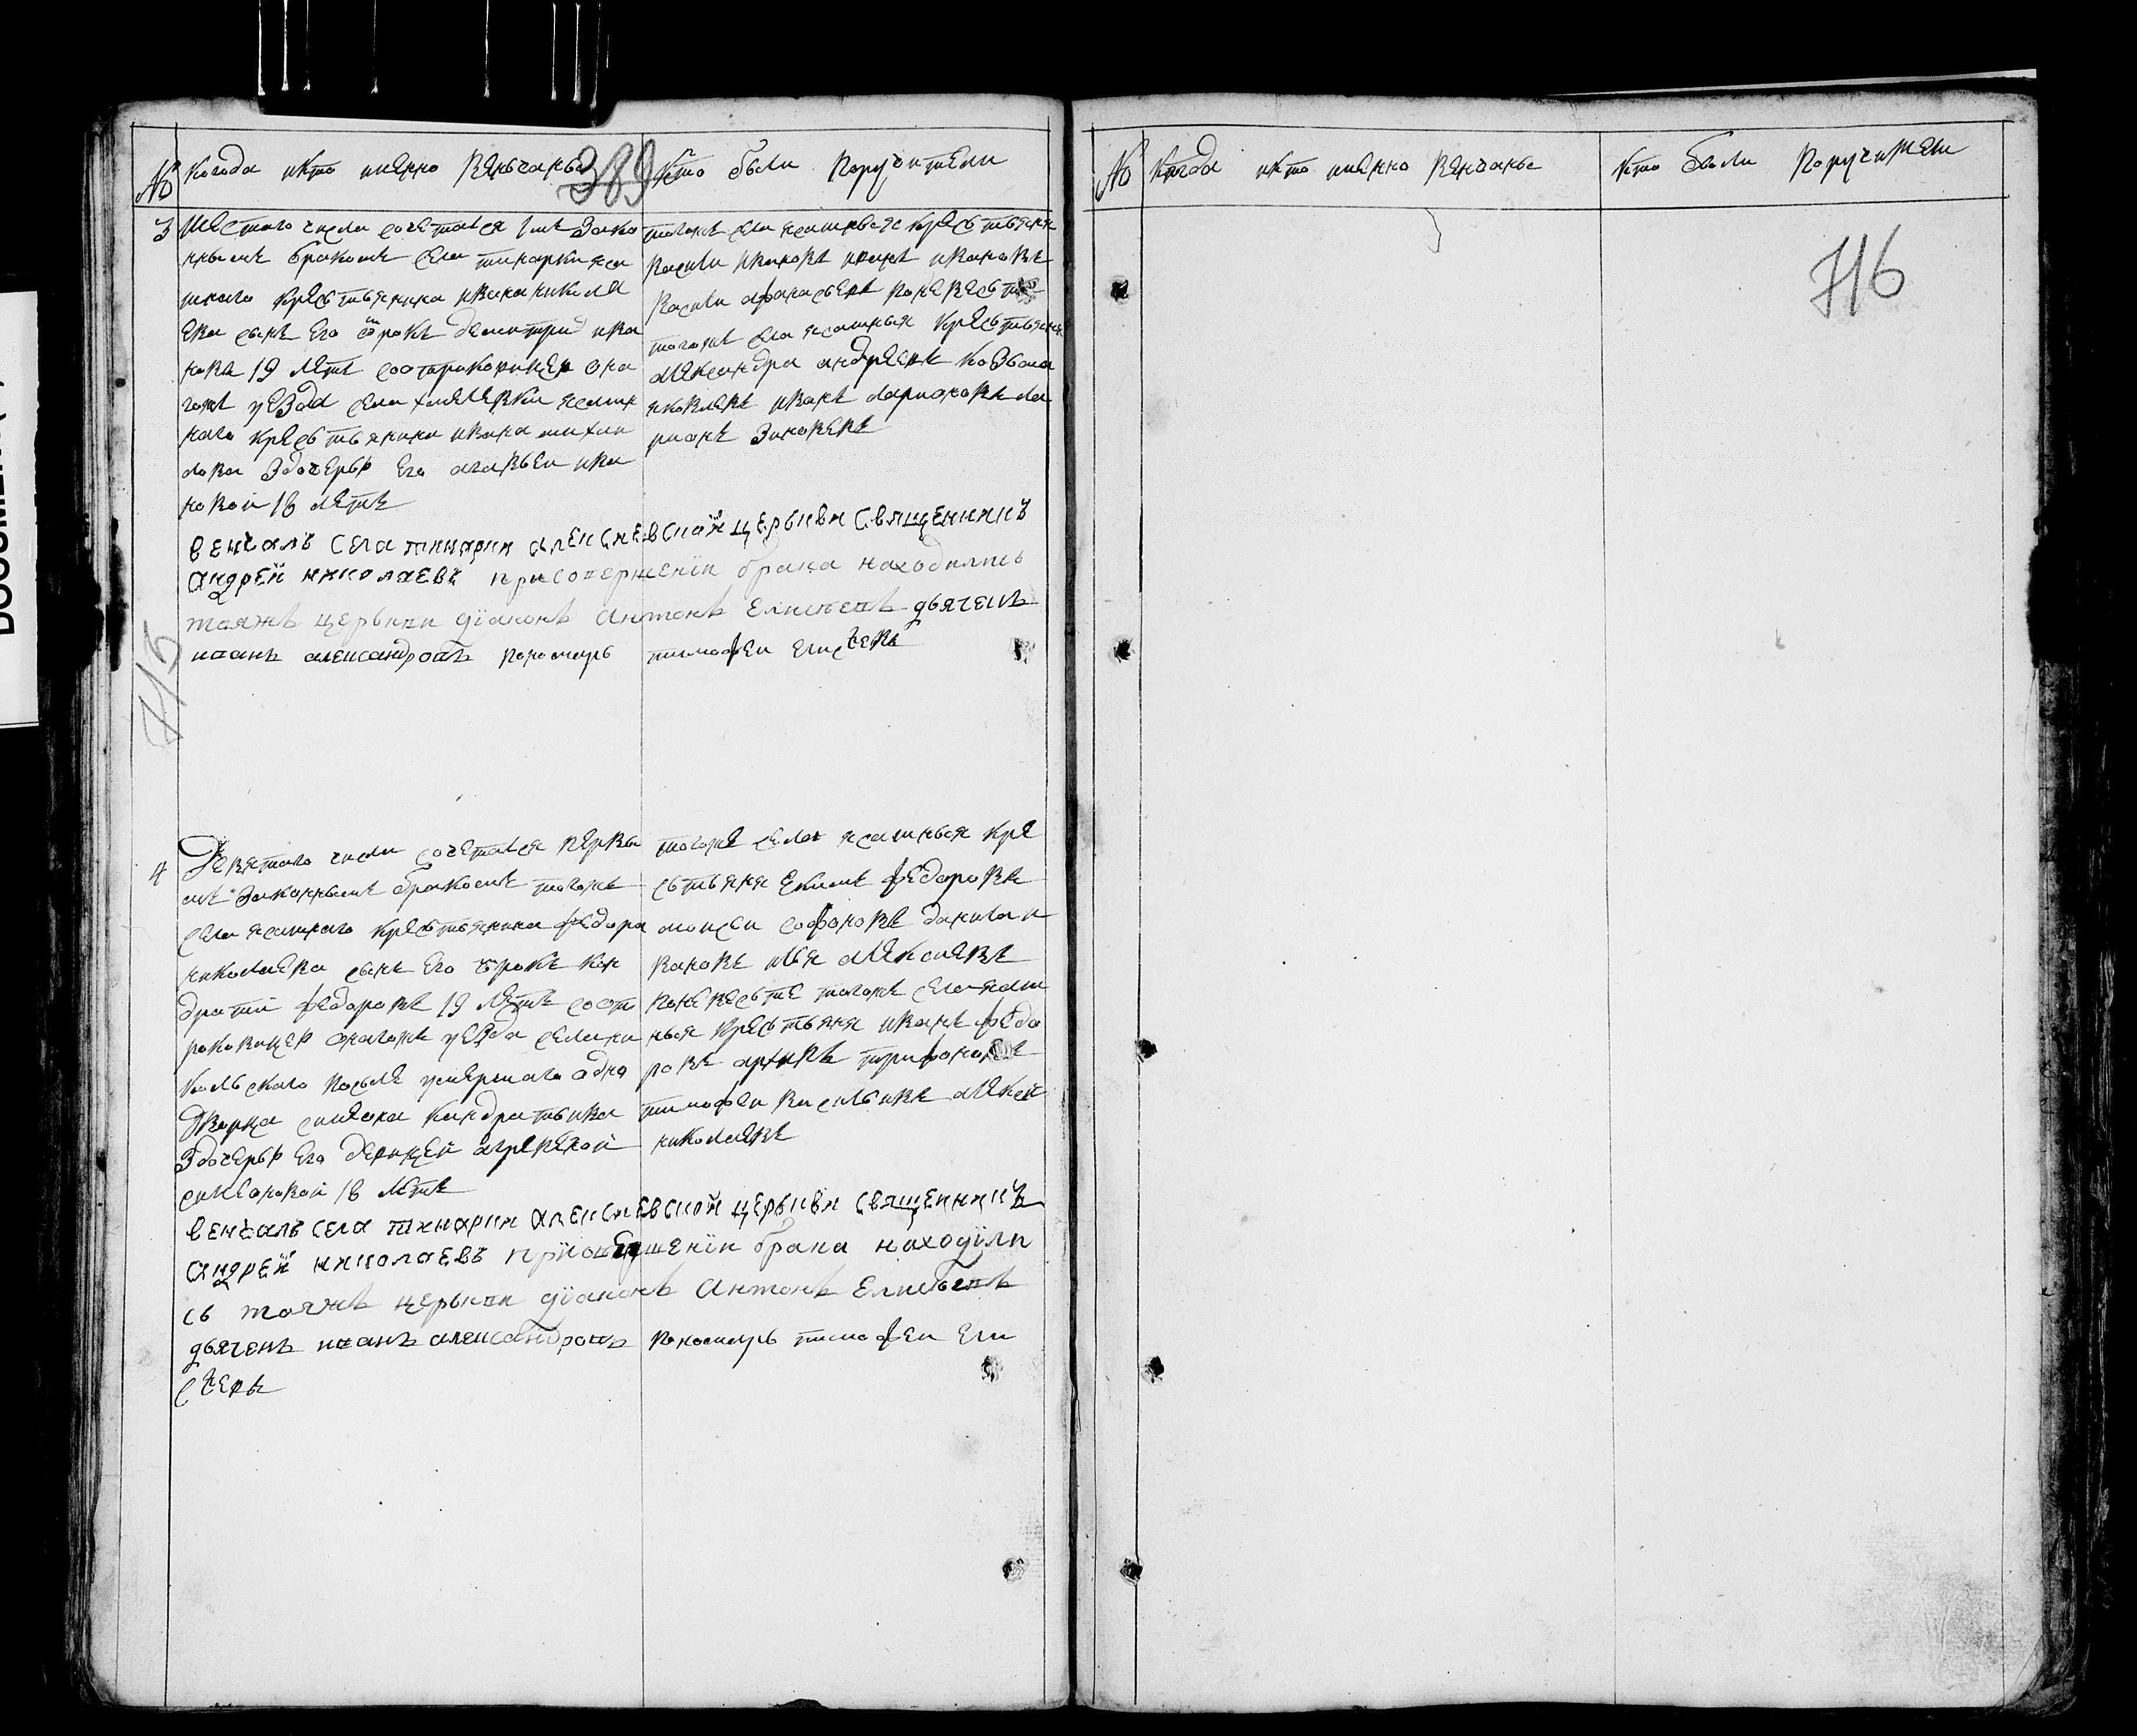 № когода икто имянно вяньчаны 389 Кто были поручители
3 Шестаго числа сочетался 1мъ зако
ннымъ бракомъ села тинарки яса
шнаго крестьянина ивана никола
ева сынъ его отрокъ дмитрий ива
новъ 19 летъ соотроковицею она
гожъ уезда села хмелевки ясашн
наго крестьянина ивана михаи
лова здочерью его агавьеи ива
новой 18 летъ
тогожъ села ясашныя крестьяня
васили ивановъ иванъ ивановъ
васили афанасьевъ поневесте
тогожъ села ясашныя крестьяня
александра андреевъ козьма
яковлевъ иванъ ларионовъ ла
рионъ зиновевъ
венчалъ села тинарки алексиевской церькви священникъ
андрей николаевъ присовершении брака находились
тояжъ церькви диаконъ антонъ елисеевъ дьячекъ
иванъ александровъ пономарь тимофеи елисеевъ
715
4 Девятаго числа сочетался первы
мъ законнымъ бракомъ тогожъ
села ясашнаго крестьянина федора
николаева сынъ его отрокъ кон
дратий федоровъ 19 летъ соот
роковицею оногожъ уезда села ни
кольскаго после умершаго одно
дворца симеона кондратьива
здочерью его девицей агрепеной
симеоновой 18 летъ
тогоже села ясашныя кре
стьяня екимъ федоровъ
моисеи софоновъ данила и
вановъ илья алексиевъ
поневесте тогожъ села ясаш
ныя крестьяня иванъ федо
ровъ архипъ трифоновъ
тимофеи васильивъ алексеи
николаевъ
венчалъ села тинарки алексиевской церькви священникъ
андрей николаевъ присовершении брака находили
сь тояжъ церькви диаконъ антонъ елисеевъ
дьячекъ иванъ александровъ пономарь тимофеи ели
сеевъ
№ Когда икто имянно вянчаны кто были поручители
716